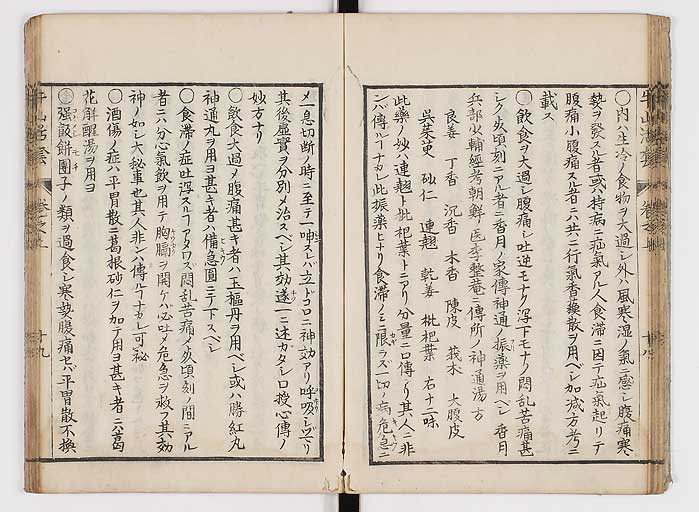 ○内ハ生冷ノ食物ヲ大過シ外ハ風寒湿ノ氣ニ感シ腹痛寒
熱ヲ發スル者或ハ持病ニ疝氣アル人食滞ニ因テ疝氣起リテ
腹痛小腹痛スル者ニハ共ニ行氣香蘓散ヲ用ベシ加減方考ニ
載ス
○飲食ヲ大過シ腹痛シ吐逆モナク瀉下モナク悶乱苦痛甚
シク死頃刻ニアル者ニ香月ノ家傳神通ノ振薬ヲ用ベシ香月
兵部少輔經考朝鮮ノ医李整菴ニ傳所ノ神通湯方
良姜 丁香 沉香 木香 陳皮 莪朮 大腹皮
呉茱萸 砂仁 連翹 乾姜 枇杷葉 右十二味
此藥ノ妙ハ連翹ト枇杷葉トニアリ分量ニ口傳アリ其人ニ非
ンバ傳フルナカレ此振薬ヒトリ食滞ノミニ限ラズ一切ノ病危急ニ
メ一息切断ノ時ニ至テ一呷スレバ立トコロニ神効アリ呼吸シヅマリ
其後虚實ヲ分別メ治スベシ其効遂一ニ述ガタシ口授心傳ノ
妙方ナリ
○飲食大過メ腹痛甚キ者ハ玉樞丹ヲ用ベシ或ハ勝紅丸
神通丸ヲ用ヨ甚キ者ハ備急圓ニテ下スベシ
○食滞ノ症吐瀉スルヿアタハズ悶乱苦痛メ死頃刻ノ間ニアル
者ニハ分心氣飲ヲ用テ胸膈ヲ開ケハ必吐メ危急ヲ救フ其効
神ノ如シ大秘事也其人非ンバ傳ルヿナカレ可秘
○酒傷ノ症ハ平胃散ニ葛根砂仁ヲ加テ用ヨ甚キ者ニハ葛
花解醒湯ヲ用ヨ
○强飯餅團子ノ類ヲ過食シ寒熱腹痛セバ平胃散不換